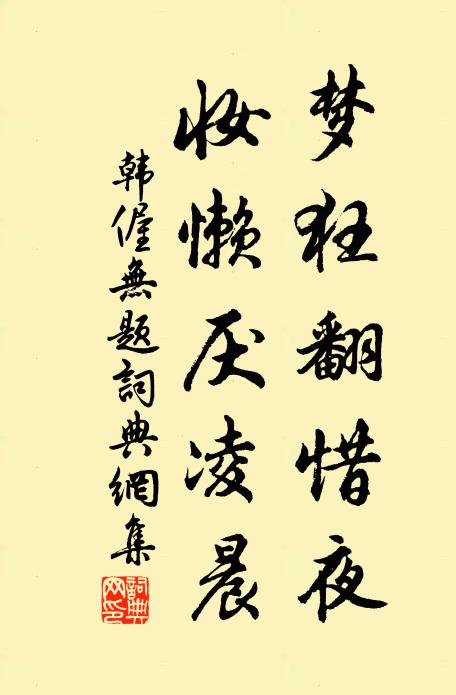 梦狂翻惜夜
妆懒厌凌晨
韩偓無题詞典網集
詞典网印